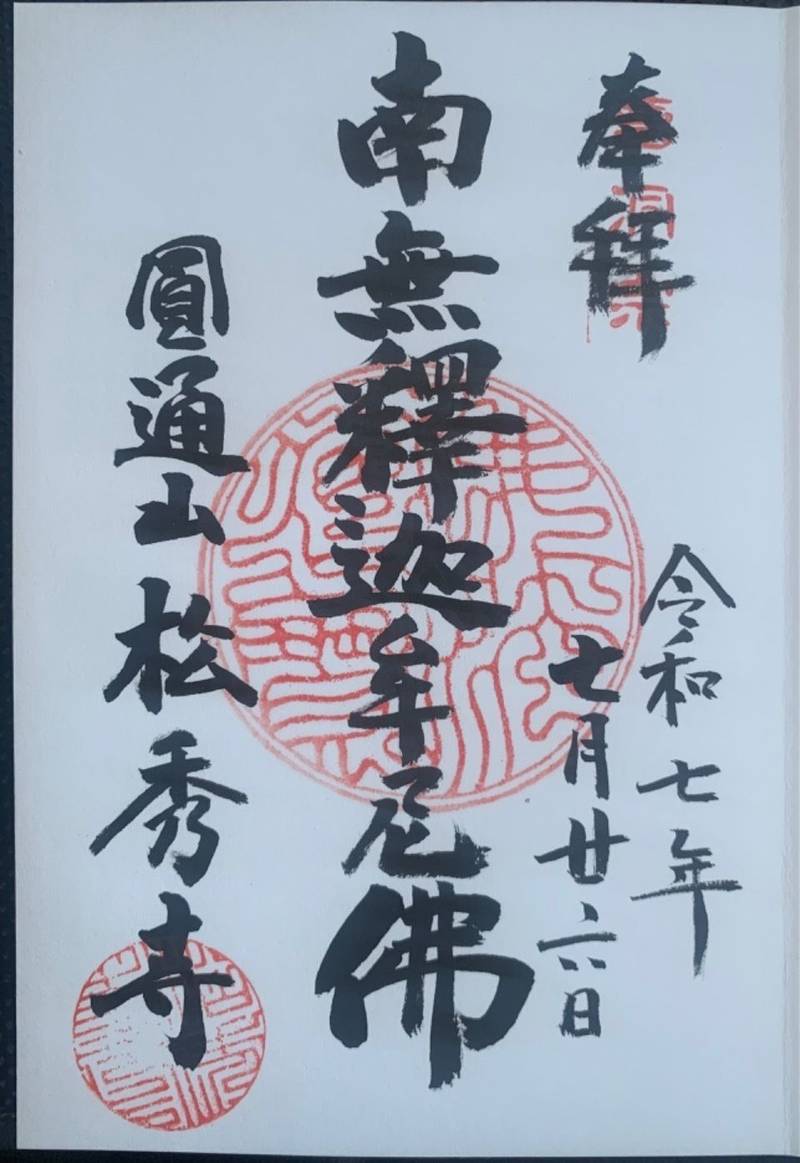 奉拜
令和七年
七月廿六日
南無釋迦牟尼佛
圓通山松秀寺